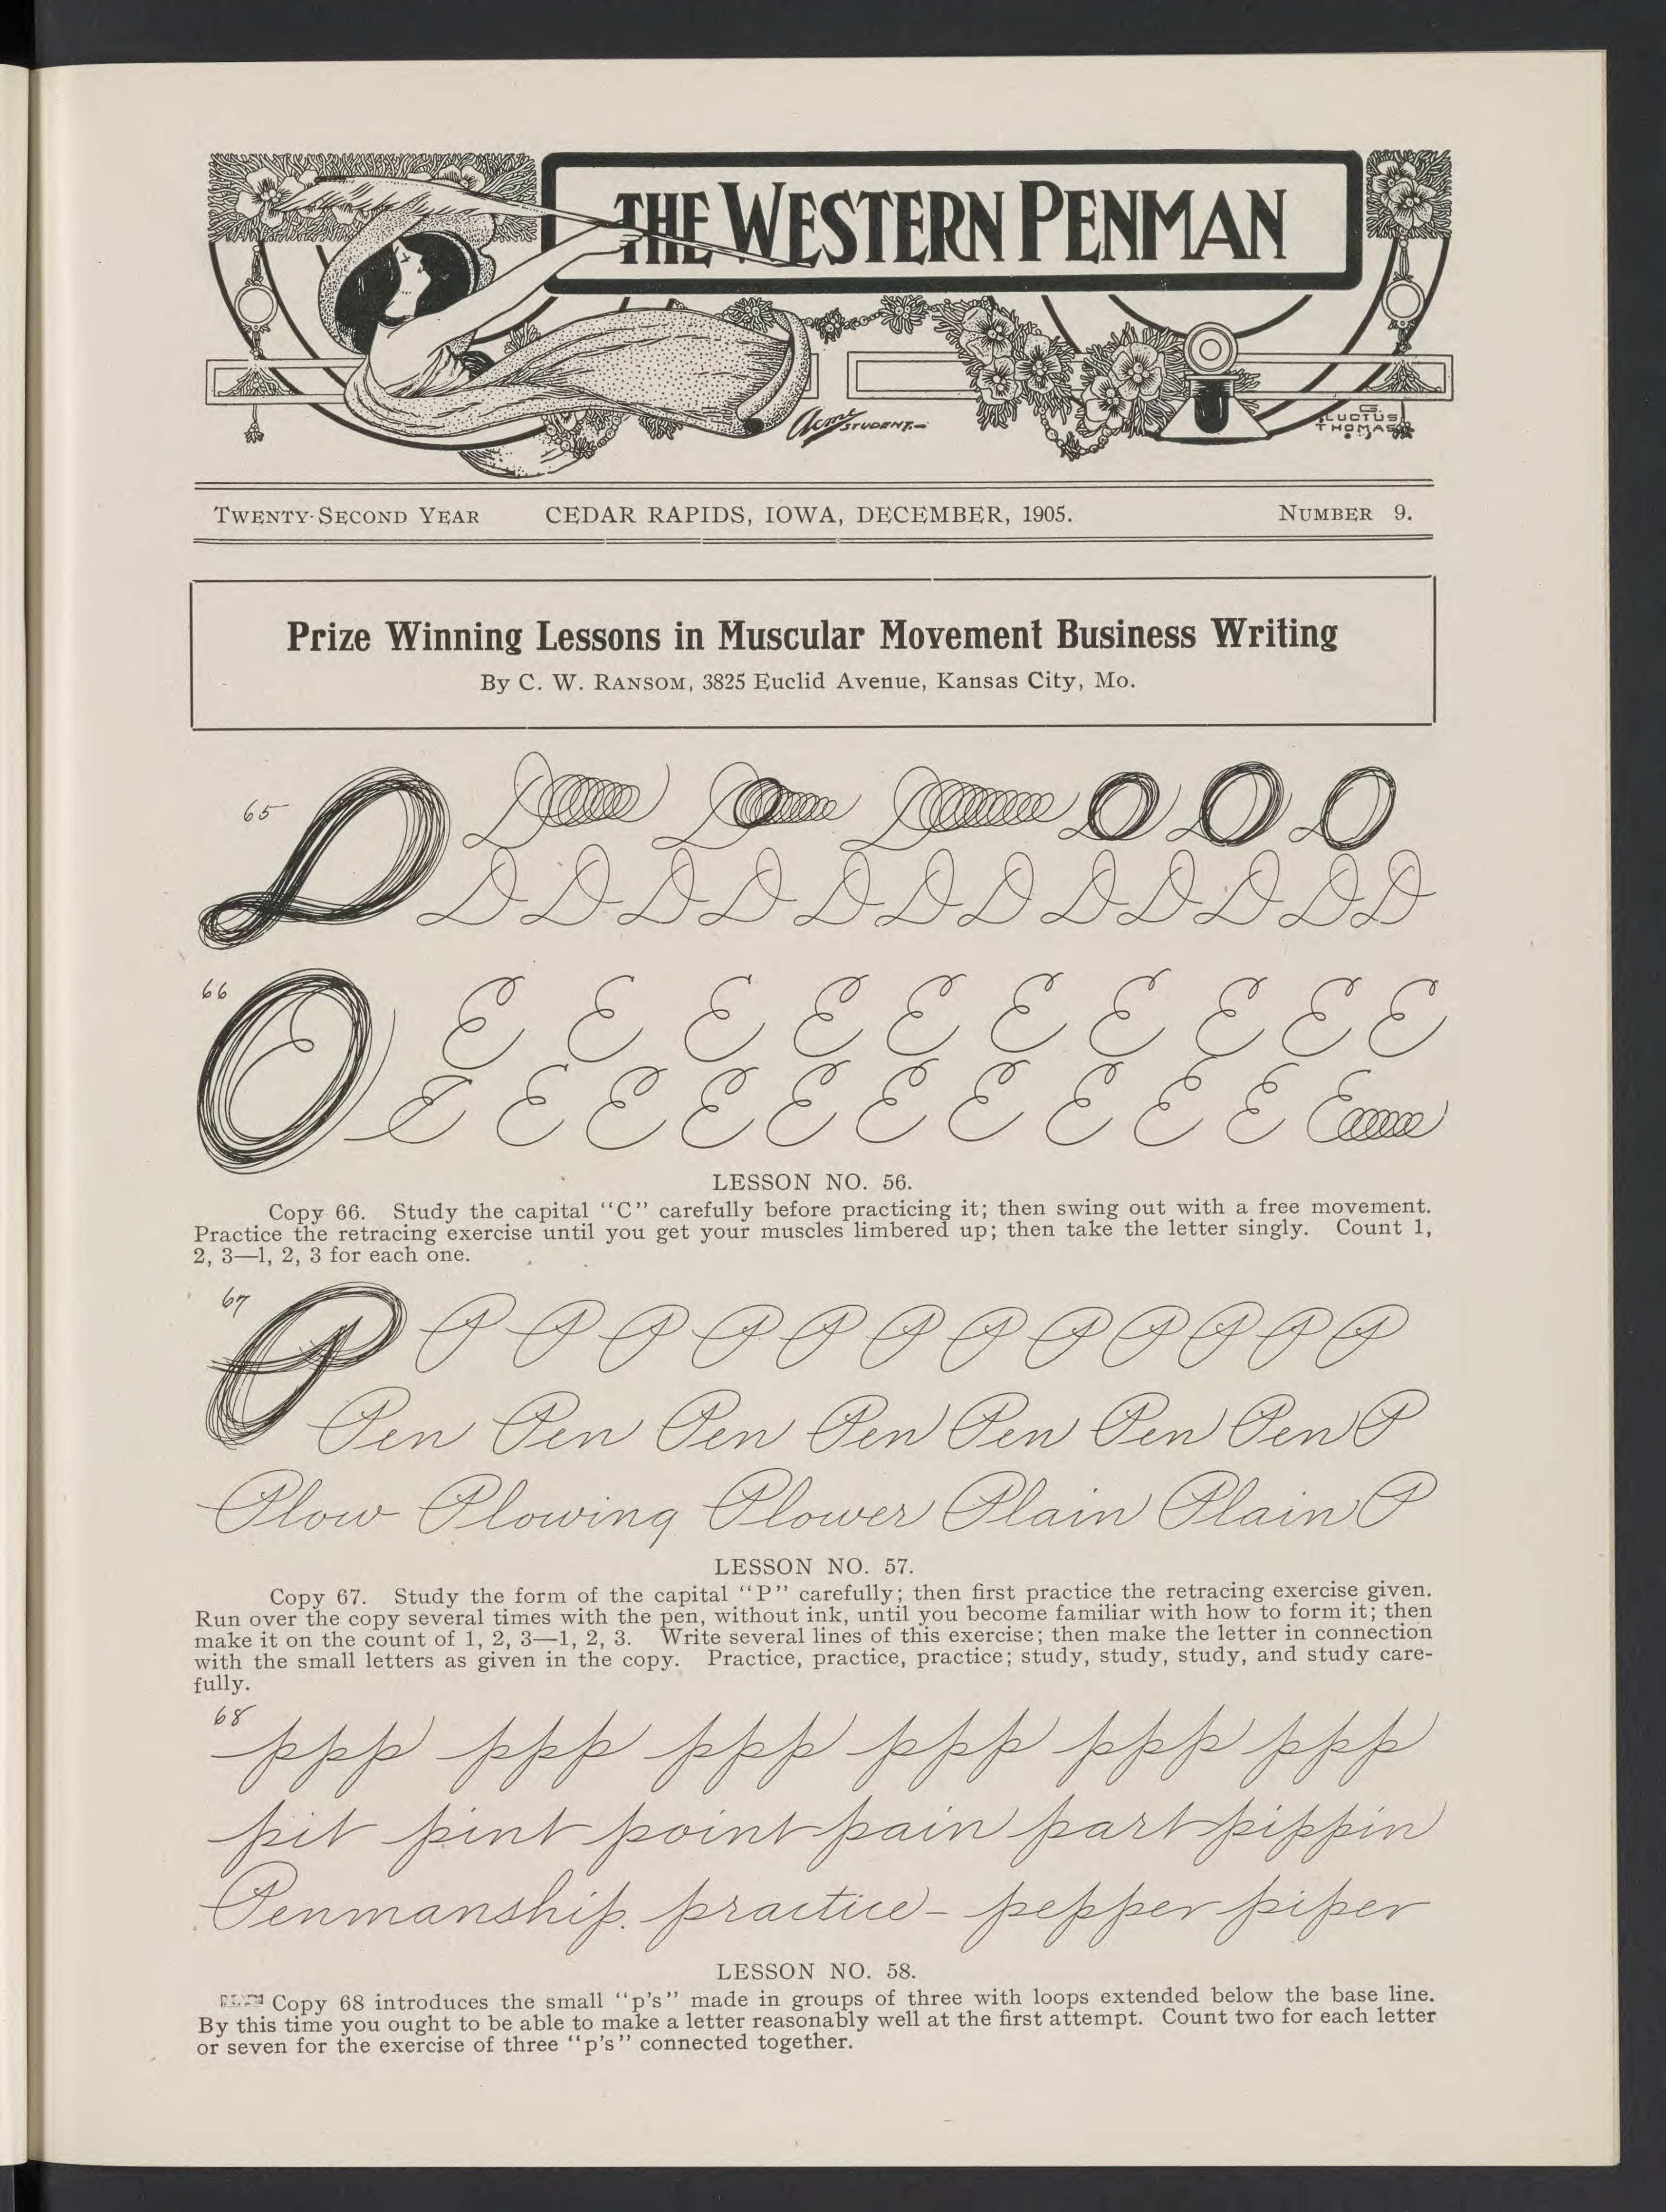 THE WESTERN PENMAN
Acme STUDENT.
G. LUCIUS
THOMAS
TWENTY-SECOND YEAR CEDAR RAPIDS, IOWA, DECEMBER, 1905. NUMBER 9.
Prize Winning Lessons in Muscular Movement Business Writing
By C. W. RANSOM, 3825 Euclid Avenue, Kansas City, Mo.
65 D D D D O O O
D D D D D D D D D D D D
66 E E E E E E E E E E E
E E E E E E E E E E E
LESSON NO. 56.
Copy 66. Study the capital "C" carefully before practicing it; then swing out with a free movement.
Practice the retracing exercise until you get your muscles limbered up; then take the letter singly. Count 1,
2, 3—1, 2, 3 for each one.
67 P P P P P P P P P P P P P
Pen Pen Pen Pen Pen Pen Pen P
Plow Plowing Plower Plain Plain P
LESSON NO. 57.
Copy 67. Study the form of the capital "P" carefully; then first practice the retracing exercise given.
Run over the copy several times with the pen, without ink, until you become familiar with how to form it; then
make it on the count of 1, 2, 3—1, 2, 3. Write several lines of this exercise; then make the letter in connection
with the small letters as given in the copy. Practice, practice, practice; study, study, study, and study care-
fully.
68 ppp ppp ppp ppp ppp ppp
pit pint point pain part pippin
Penmanship. practice - pepper piper
LESSON NO. 58.
Copy 68 introduces the small "p's" made in groups of three with loops extended below the base line.
By this time you ought to be able to make a letter reasonably well at the first attempt. Count two for each letter
or seven for the exercise of three "p's" connected together.